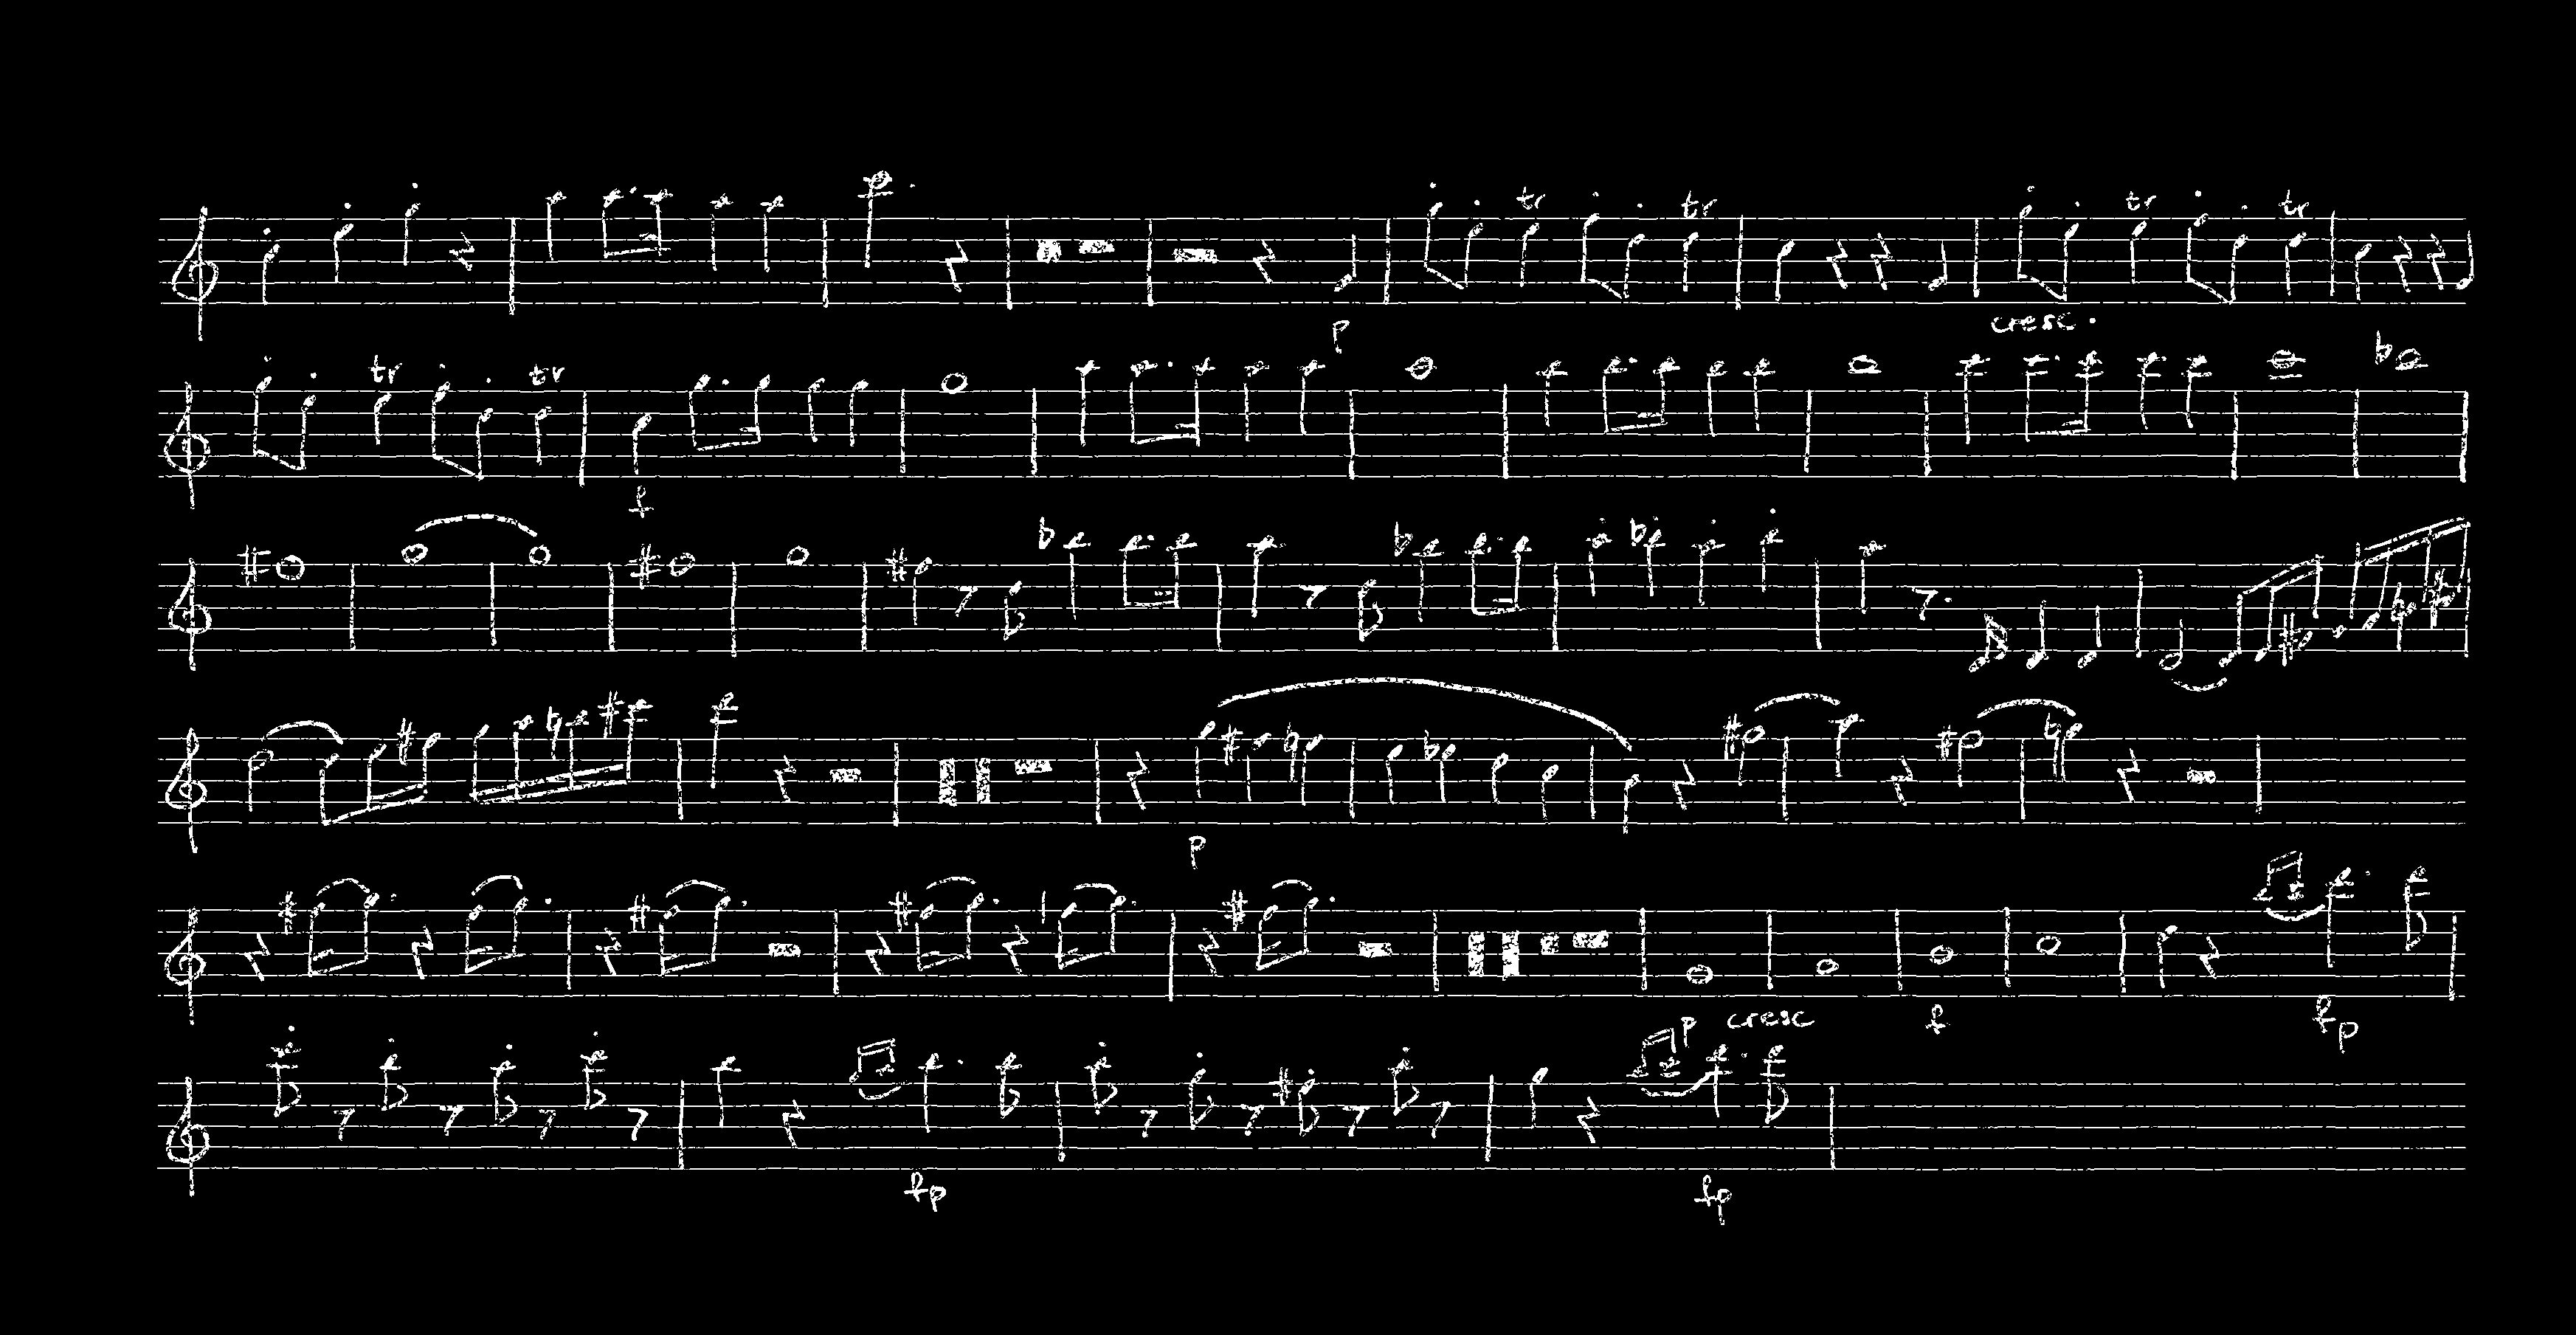 tr tr tr tr
p cresc.
tr tr
f
p
p cresc f fp
fp fp